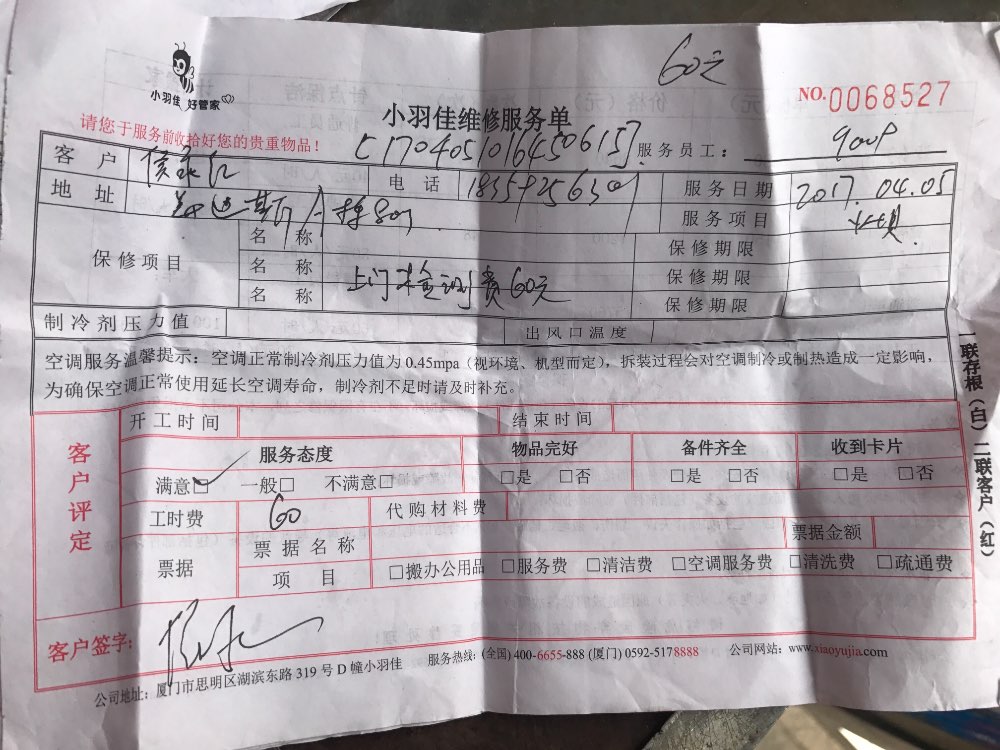 60元
小羽佳 好管家
NO.0068527
小羽佳维修服务单
请您于服务前收拾好您的贵重物品！
[1704051016450615] 服务员工：
客 户 电 话 服务日期 2017.04.05
地 址 服务项目
保修项目 名 称 保修期限
名 称 保修期限
名 称 上门检测费60元 保修期限
制冷剂压力值 出风口温度
空调服务温馨提示：空调正常制冷剂压力值为0.45mpa（视环境、机型而定），拆装过程会对空调制冷或制热造成一定影响，
为确保空调正常使用延长空调寿命，制冷剂不足时请及时补充。
一联存根（白）二联客户（红）
客户评定
开工时间 结束时间
服务态度 物品完好 备件齐全 收到卡片
满意□ 一般□ 不满意□ □是 □否 □是 □否 □是 □否
工时费 60 代购材料费
票据 票据名称 票据金额
项 目 □搬办公用品 □服务费 □清洁费 □空调服务费 □清洗费 □疏通费
客户签字：
公司地址：厦门市思明区湖滨东路319号D幢小羽佳 服务热线：(全国) 400-6655-888 (厦门) 0592-5178888 公司网站：www.xiaoyujia.com